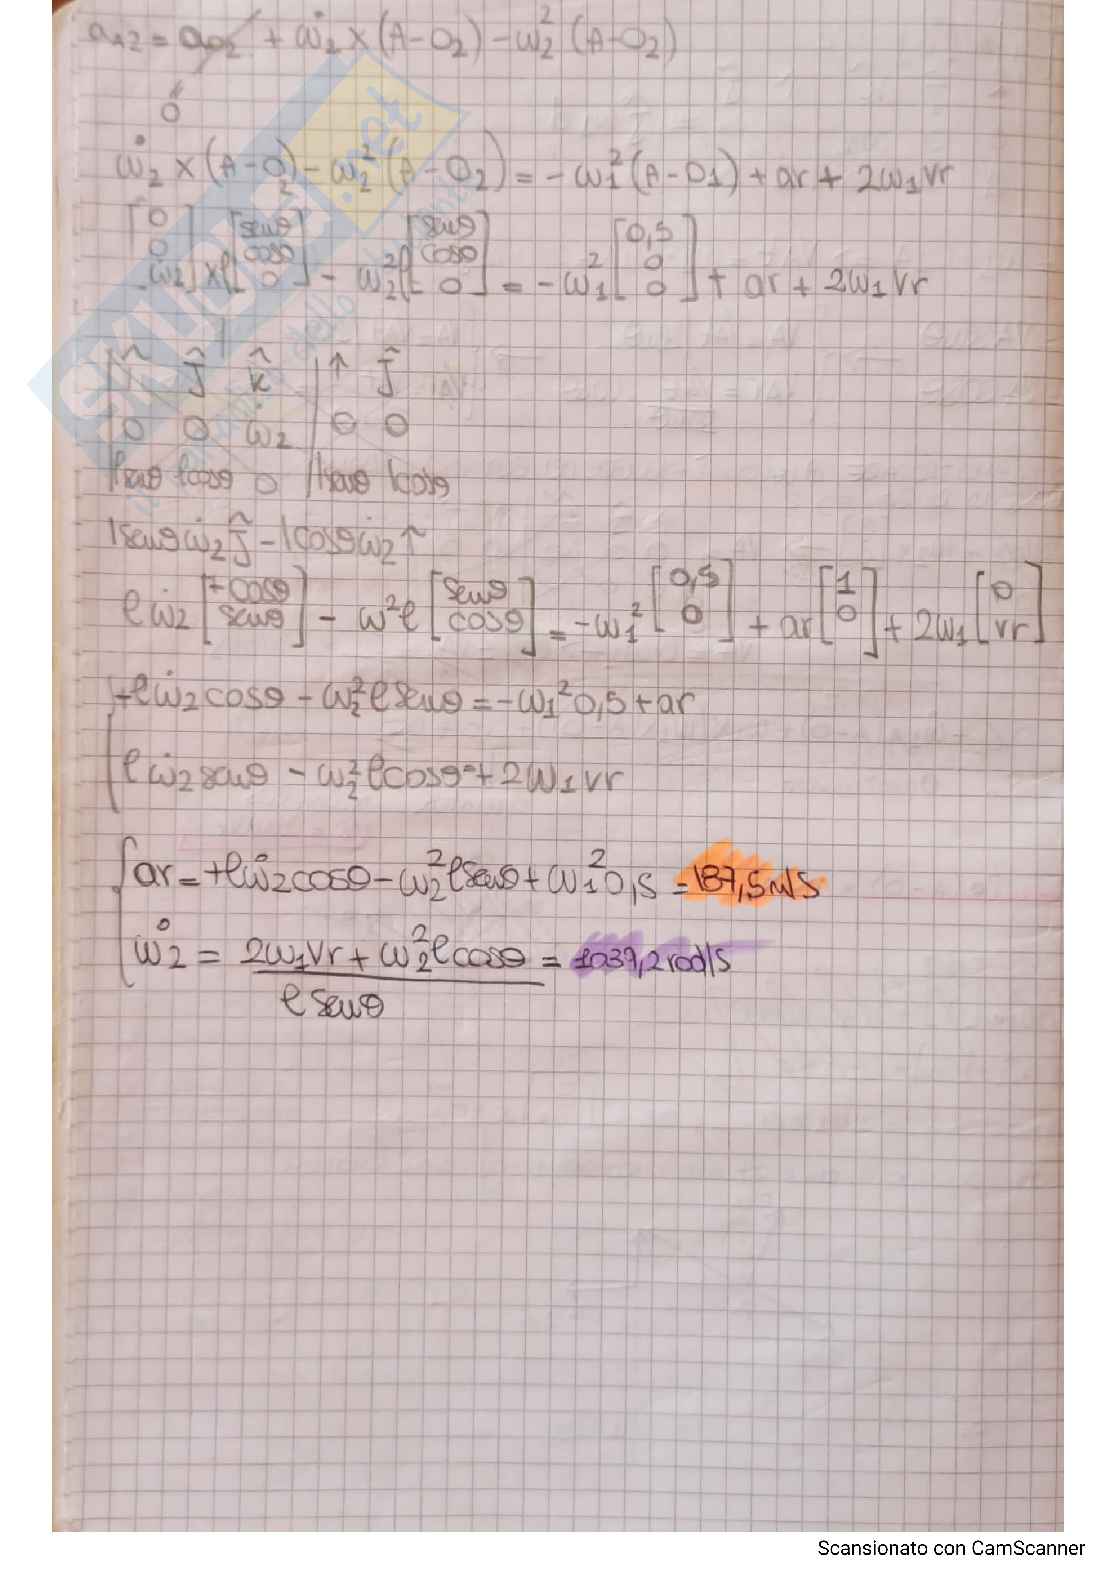 a_A2 = a_O2 + ω̇_2 × (A-O_2) - ω_2^2 (A-O_2)
0
ω̇_2 × (A-O_2) - ω_2^2 (A-O_2) = -ω_1^2 (A-O1) + ar + 2ω_1 vr
[0 0 ω̇_2] × ℓ [senθ cosθ 0] - ω_2^2 ℓ [senθ cosθ 0] = -ω_1^2 [0,5 0 0] + ar + 2ω_1 vr
î ĵ k̂ | î ĵ
0 0 ω̇_2 | 0 0
lsenθ lcosθ 0 | lsenθ lcosθ
lsenθ ω̇_2 ĵ - lcosθ ω̇_2 î
ℓ ω̇_2 [+cosθ senθ] - ω^2 ℓ [senθ cosθ] = -ω_1^2 [0,5 0] + ar [1 0] + 2ω_1 [0 vr]
+ℓ ω̇_2 cosθ - ω_2^2 ℓ senθ = -ω_1^2 0,5 + ar
ℓ ω̇_2 senθ - ω_2^2 ℓ cosθ = + 2ω_1 vr
ar = +ℓ ω̇_2 cosθ - ω_2^2 ℓ senθ + ω_1^2 0,5 = 187,5 m/s
ω̇_2 = 2ω_1 vr + ω_2^2 ℓ cosθ = 1039,2 rad/s
ℓ senθ
SKUOLA.net
Scansionato con CamScanner